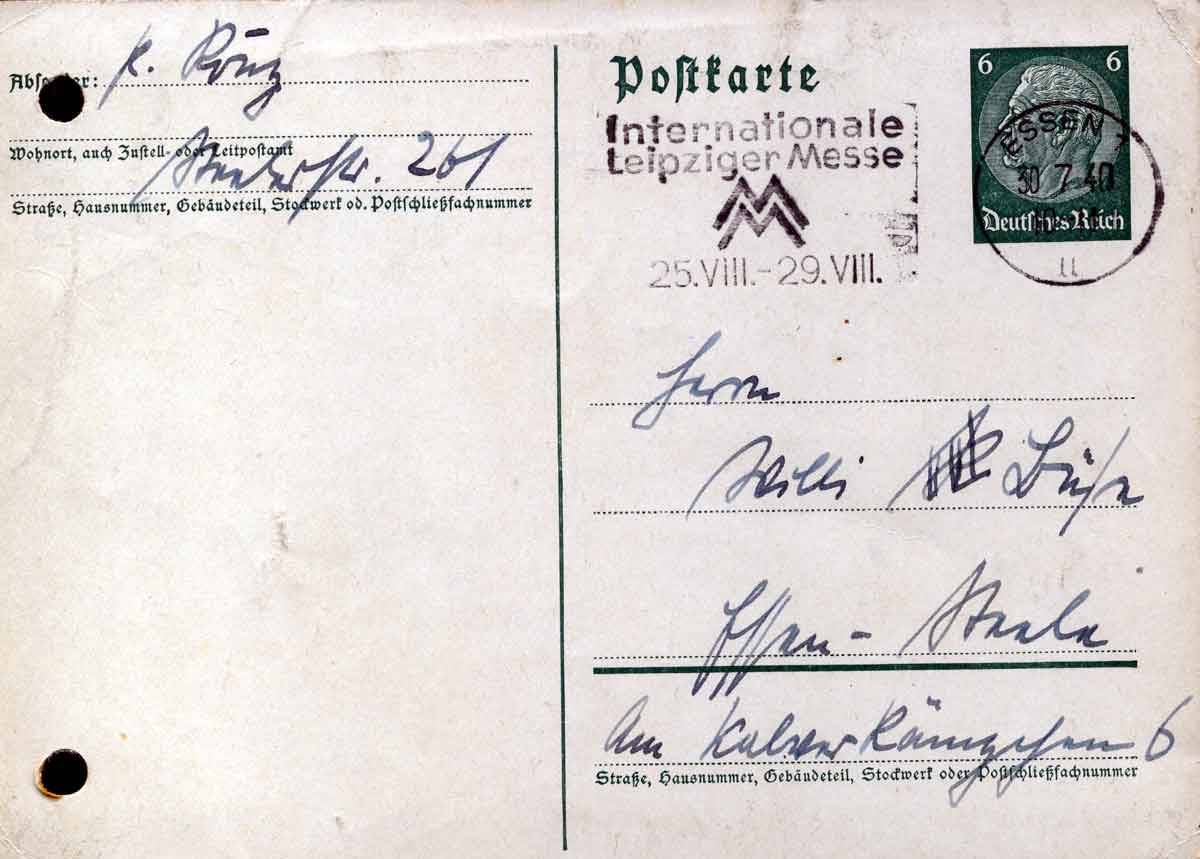 Absender: K.
Wohnort, auch Zustell- oder Leitpostamt
Steelerstr. 261
Straße, Hausnummer, Gebäudeteil, Stockwerk od. Postschließfachnummer
Postkarte
Internationale
Leipziger Messe
MM
25.VIII.-29.VIII.
6 6
ESSEN
30 7 40
Deutsches Reich
11
Herrn
Willi
Essen-Steele
Am Kalverkämpchen 6
Straße, Hausnummer, Gebäudeteil, Stockwerk oder Postschließfachnummer